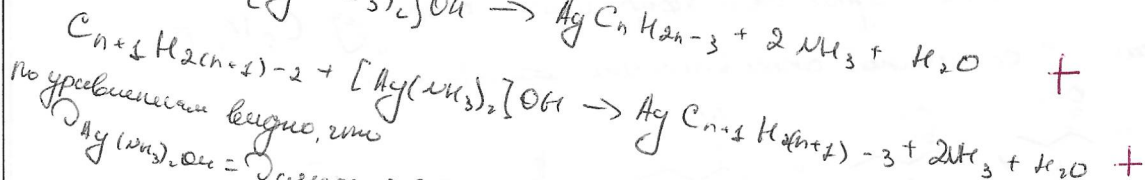 ]OH → AgCnH2n-3 + 2NH3 + H2O +
Cn+1H2(n+1)-2 + [Ag(NH3)2]OH → AgCn+1H2(n+1)-3 + 2NH3 + H2O +
по уравнениям видно, что
Ag(NH3)2OH =